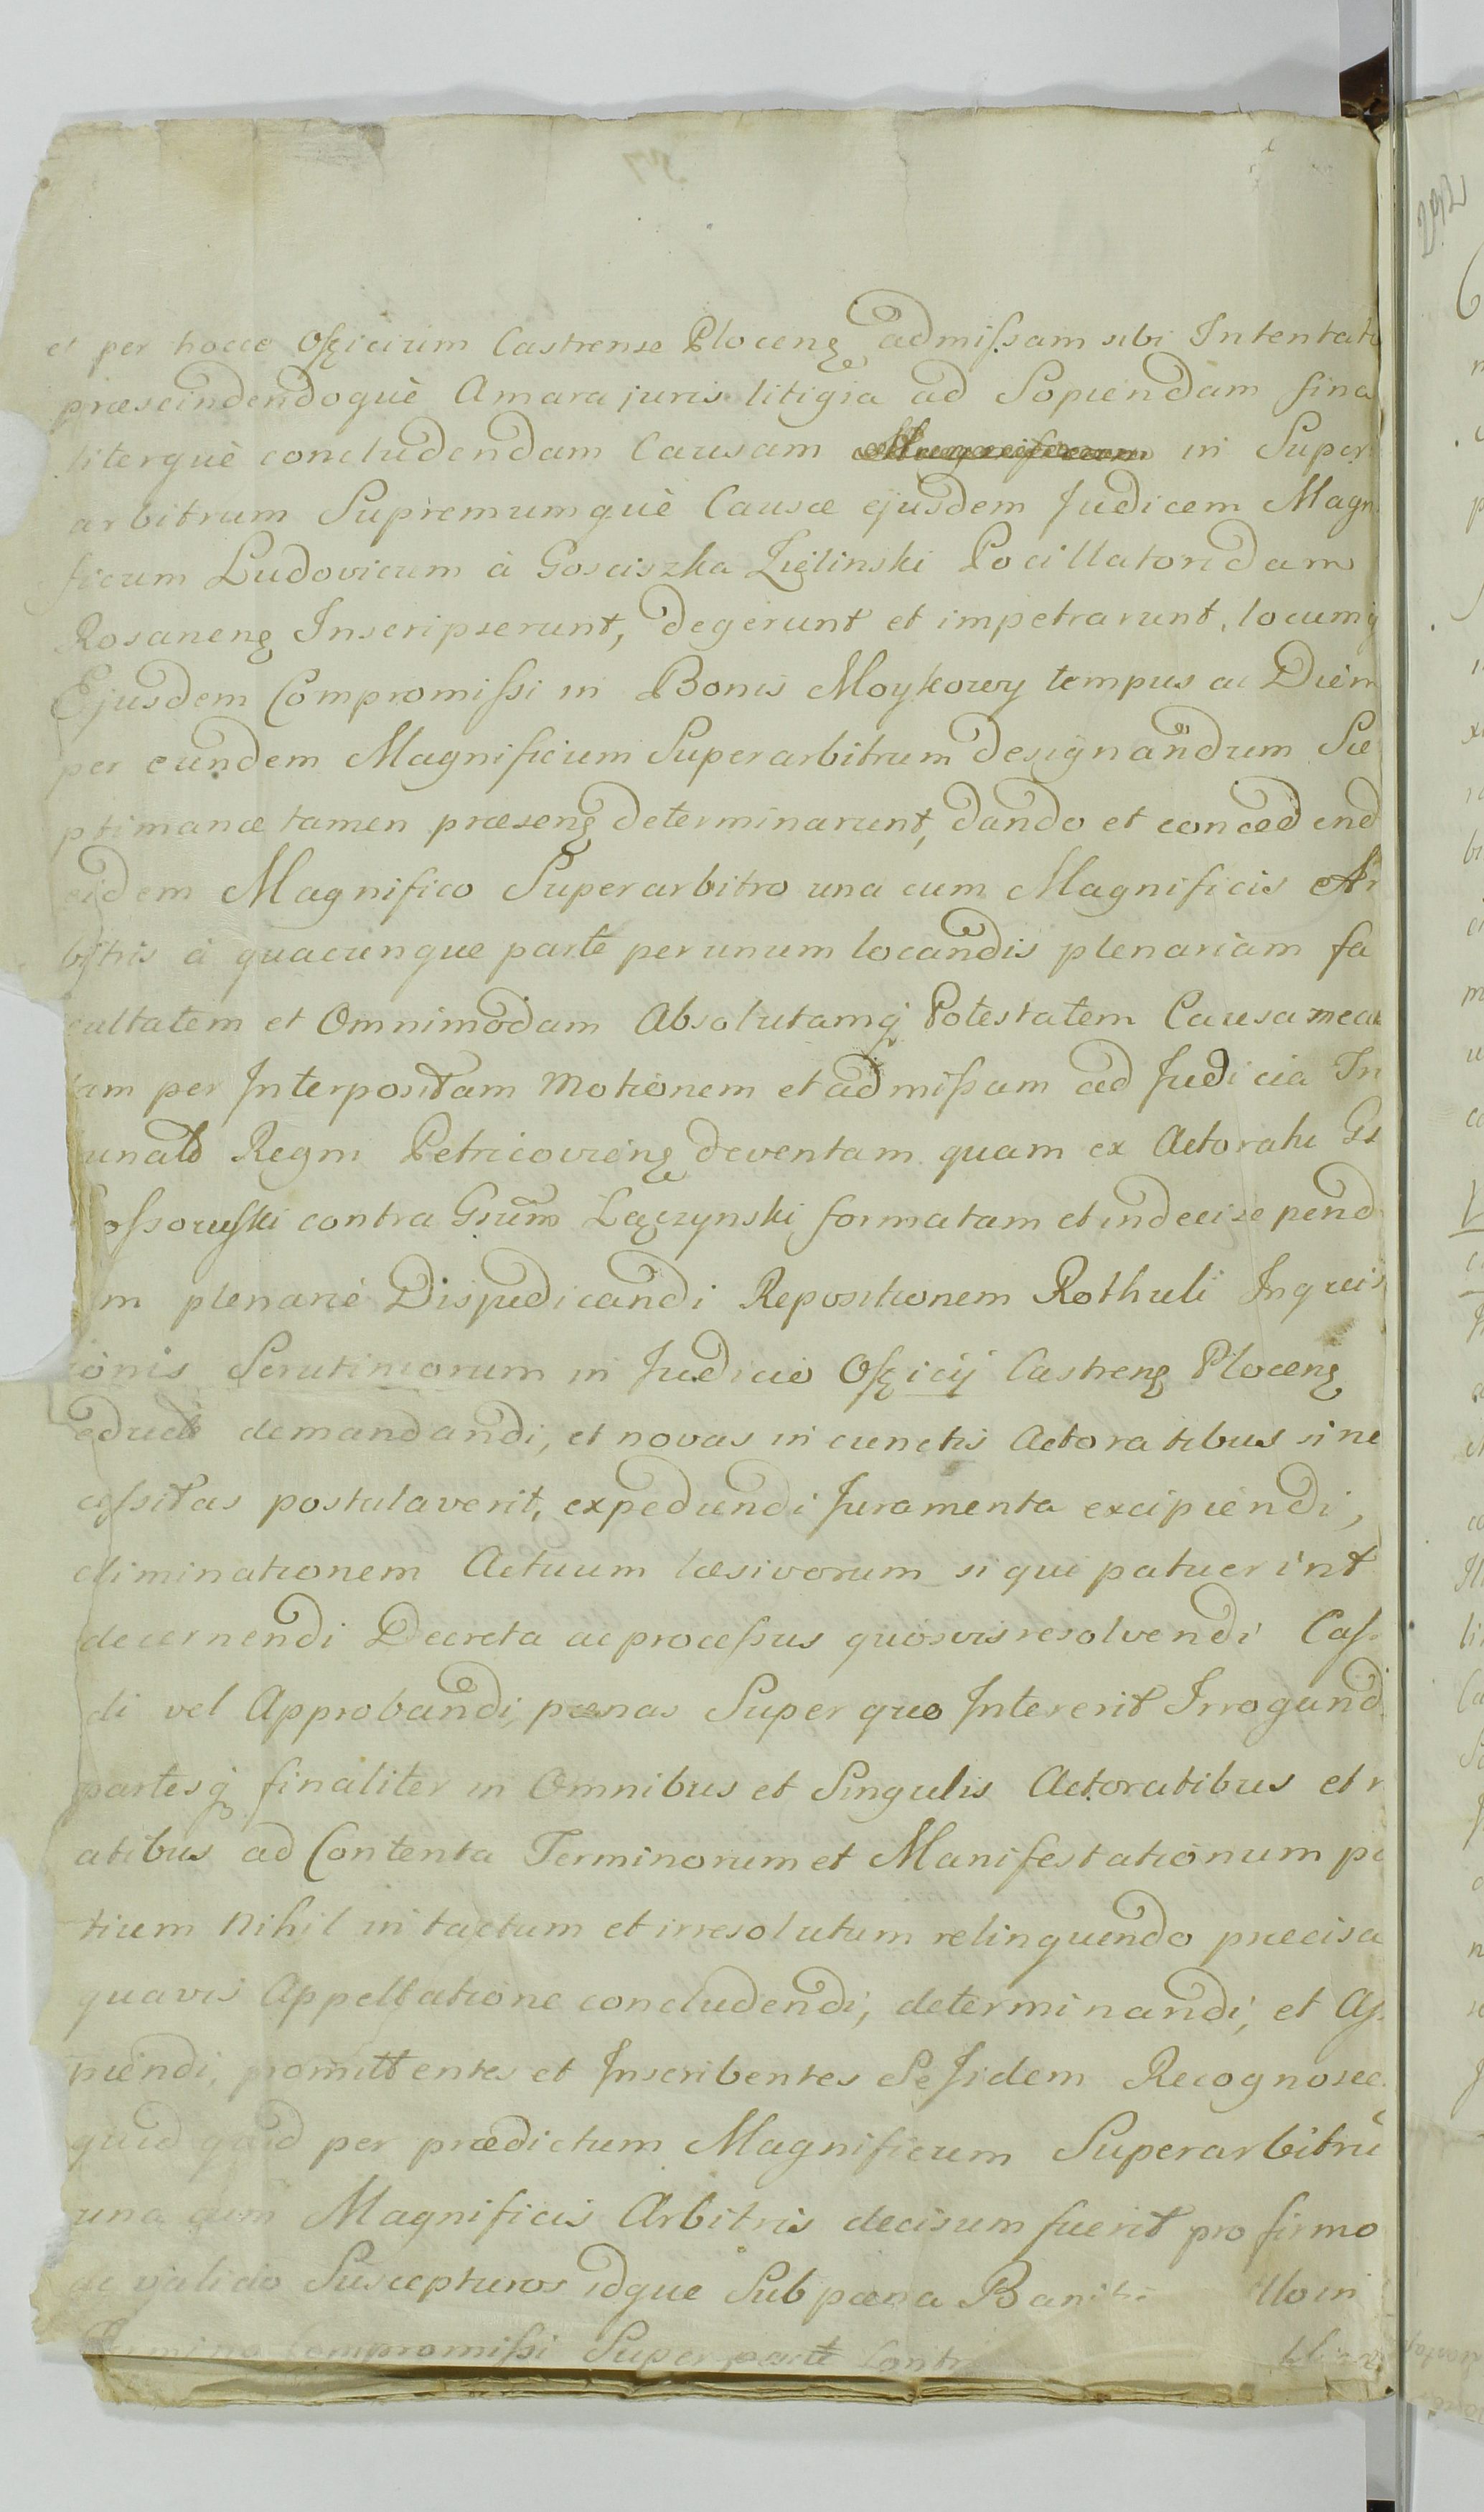 et per hocce Officium Castrense Plocenɇ admissam sibi Intentat
præscindendoquè Amara juris litigia ad Sopiendam fina
literquè concludendam Causam in Super
arbitrum Supremumquè Causæ ejusdem Judicem Magn
ficum Ludovicum à Gosciszka Zięlinski Pocillatoridam
Rosanenɇ Inscripserunt, degerunt et impetrarunt, locumq
Ejusdem Compromissi in Bonis Moykowy tempus ac Diem
per eundem Magnificum Superarbitrum designandum Se
ptimanæ tamen præsenɇ determinarunt, dando et concedend
eidem Magnifico Superarbitro una cum Magnificis Ar
bitris à quacunque parte per unum locandis plenariam fa
cultatem et Omnimodam Absolutamq Potestatem Causam
am per Interpositam Motionem et admissam ad Judicia Tri
unals Regni Petricovienɇ deventam quam ex Actoratu Gs
ossowski contra Gsum Łączynski formatam et indecise pend
m plenariè Disjudicandi Repositionem Rothuli Inquis
ionis Scrutiniorum in Judicio Officij Castrenɇ Plocenɇ
educti demandandi, et novas in cunctis Actoratibus si ne
cessitas postulaverit, expediendi Juramenta excipiendi,
eliminationem Actuum læsivorum si qui patuerint
decernendi Decreta ac processus quosvis resolvendi Cas
di vel Approbandi, pænas Super quo Intererit Irrogand
partesq finaliter in Omnibus et Singulis Actoratibus et r
atibus ad Contenta Terminorum et Manifestationum pa
tium Nihil intactum et irresolutum relinquendo præcisa
quavis Appellatione concludendi, determinandi, et
piendi, promittentes et Inscribentes Se Jidem Recognosce
quid quid per prædictum Magnificum Superarbitrū
una cum Magnificis Arbitris decisum fuerit pro firmo
ac valido Suscepturos idque Sub pæna Baniti llo in
Termino Compromissi Super parte Cont